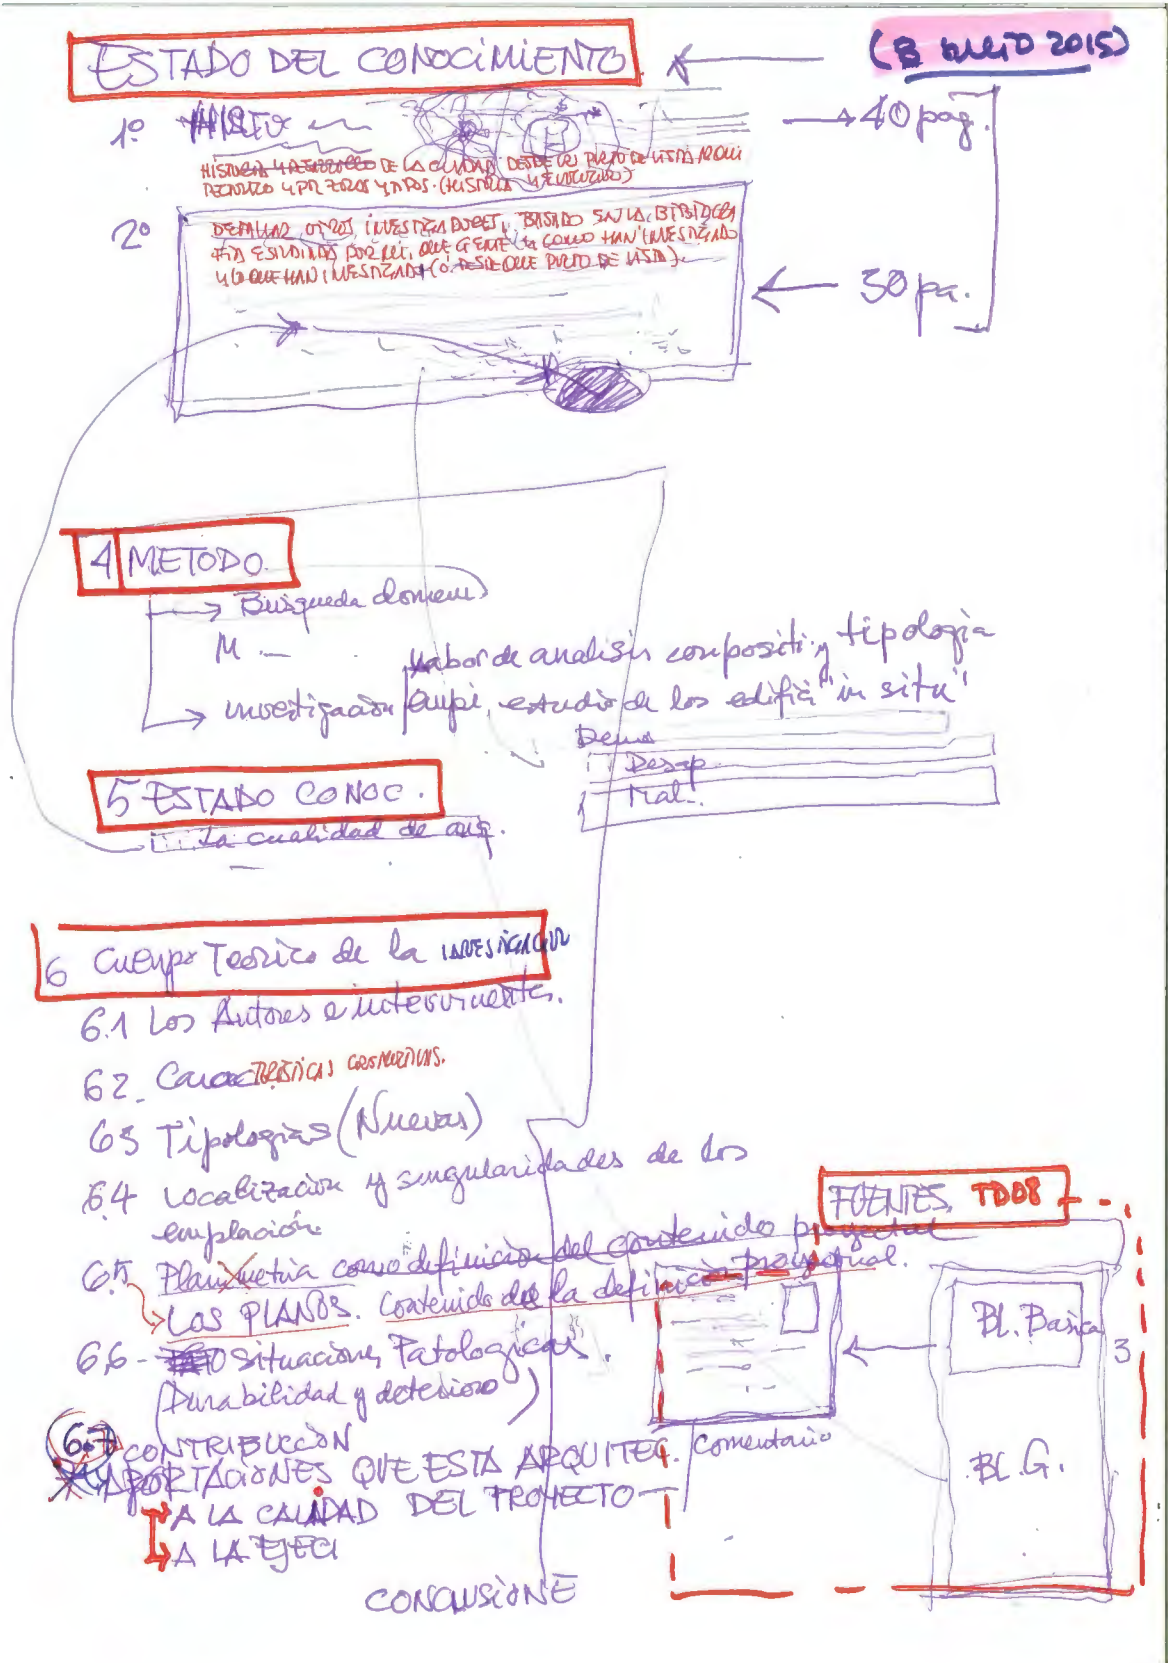 ESTADO DEL CONOCIMIENTO.
(8 JULIO 2015)
1º
40 pag.
HISTORIA Y DESARROLLO DE LA CIUDAD DESDE UN PUNTO DE VISTA ARQUI
TECTONICO Y POR ZONAS Y TIPOS. (HISTORIA Y EVOLUCION)
2º
DETALLAR OTROS INVESTIGADORES, BASADO EN LA BIBIOGRA
FIA ESTUDIADA POR MI, QUE GENTE Y COMO HAN INVESTIGADO
Y LO QUE HAN INVESTIGADO (O DESDE QUE PUNTO DE VISTA).
30 pa.
4 METODO.
Búsqueda
M
labor de analisis compositi. y tipologia
investigación empi, estudio de los edifici "in situ"
Desap.
Mat..
5 ESTADO CONOC.
La cualidad de arq.
6 Cuerpo Teorico de la INVESTIGACION
6.1 Los Autores e intervinientes.
6.2_ CaracTERISTICAS
6.3 Tipologias (Nuevas)
6.4 Localización y singularidades de los
emplación
FUENTES. TD08
6.5 Planimetria como definicion del contenido proyectual
LOS PLANOS. Contenido de la definición proyectual.
6,6 - Situaciones Patologicas.
(Durabilidad y deterioro)
Bl. Basica
3
Bl. G.
Comentario
6.7 CONTRIBUCCION
APORTACIONES QUE ESTA ARQUITEC.
A LA CALIDAD DEL PROYECTO
A LA EJECU
CONCLUSIONE